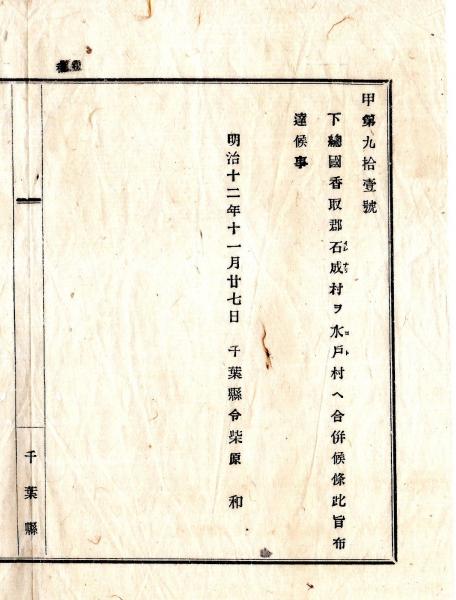 甲第九拾壹號
下總國香取郡石成村ヲ水戸村ヘ合併候條此旨布
達候事
明治十二年十一月廿七日　千葉縣令柴原　和
千葉縣